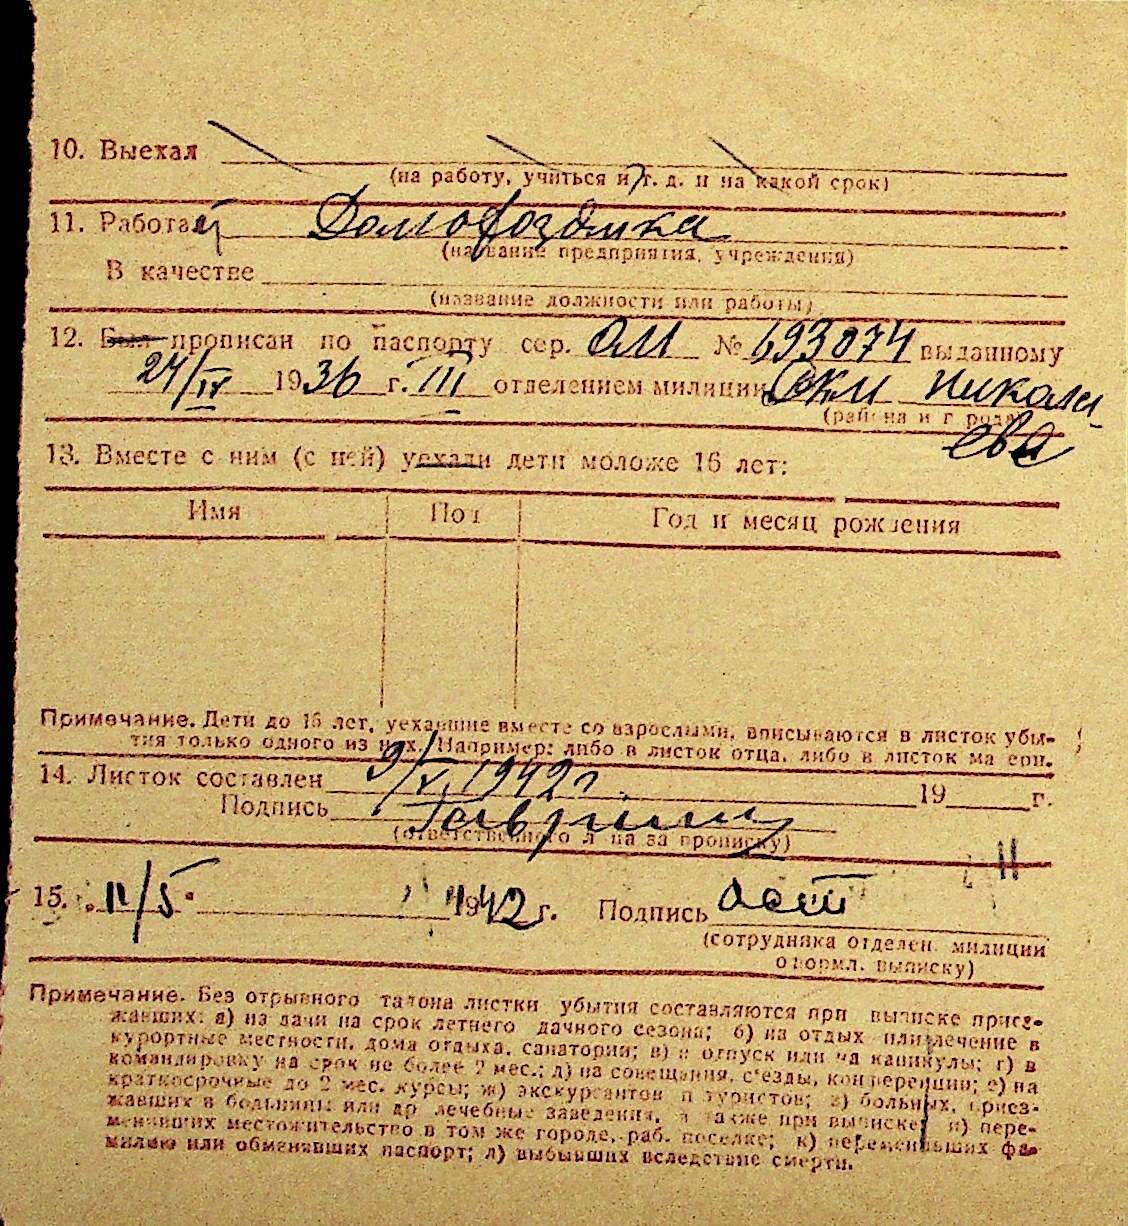 10. Выехал
(на работу, учиться и т. д. и на какой срок)
11. Работает Домохозяйка
(название предприятия, учреждения)
В качестве
(название должности или работы)
12. Был прописан по паспорту сер. ОМ № 693874 выданному
24/IV 1936 г. III отделением милиции РКМ Никола-
(района и города)
ева
13. Вместе с ним (с ней) уехали дети моложе 16 лет:
Имя Пол Год и месяц рождения
Примечание. Дети до 16 лет, уехавшие вместе со взрослыми, вписываются в листок убы-
тия только одного из них. Например: либо в листок отца, либо в листок матери.
14. Листок составлен 9/V 1942 г. 19 г.
Подпись
(ответственного лица за прописку)
15. 11/5 1942 г. Подпись
(сотрудника отделен. милиции
оформл. выписку)
Примечание. Без отрывного талона листки убытия составляются при выписке приез-
жавших: а) на дачи на срок летнего дачного сезона; б) на отдых или лечение в
курортные местности, дома отдыха, санатории; в) в отпуск или на каникулы; г) в
командировку на срок не более 2 мес.; д) на совещания, съезды, конференции; е) на
краткосрочные до 2 мес. курсы; ж) экскурсантов и туристов; з) больных, приез-
жавших в больницы или др. лечебные заведения, а также при выписке: и) пере-
менивших местожительство в том же городе, раб. поселке; к) переменивших фа-
милию или обменявших паспорт; л) выбывших вследствие смерти.